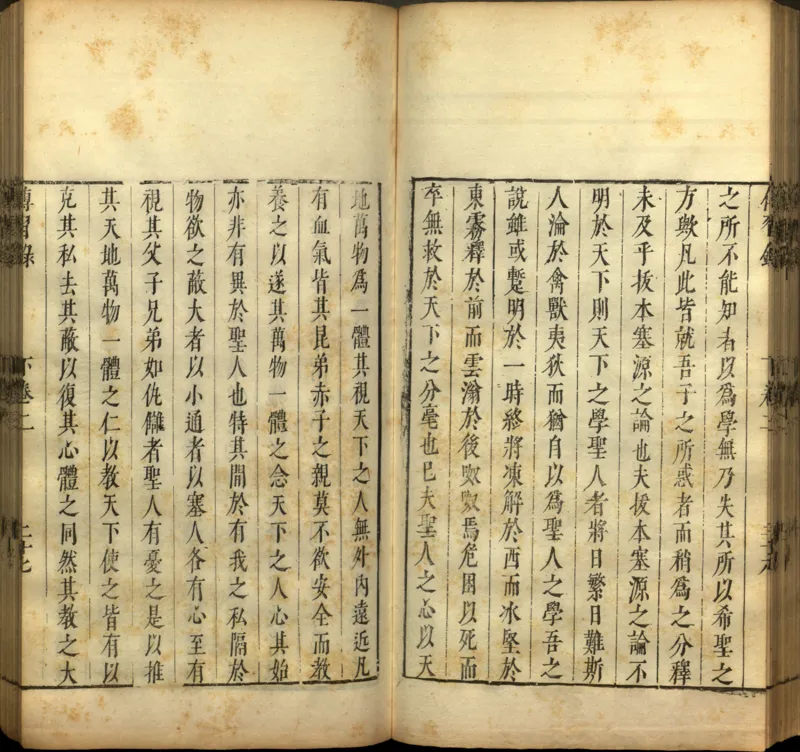 之所不能知者以爲學無乃失其所以希聖之
方歟凡此皆就吾子之所惑者而稍爲之分釋
未及乎拔本塞源之論也夫拔本塞源之論不
明於天下則天下之學聖人者將日繁日難斯
人淪於禽獸夷狄而猶自以爲聖人之學吾之
說雖或蹔明於一時終將凍解於西而冰堅於
東霧釋於前而雲滃於後呶呶焉危困以死而
卒無救於天下之分毫也已夫聖人之心以天
地萬物爲一體其視天下之人無外內遠近凡
有血氣皆其昆弟赤子之親莫不欲安全而教
養之以遂其萬物一體之念天下之人心其始
亦非有異於聖人也特其間於有我之私隔於
物欲之蔽大者以小通者以塞人各有心至有
視其父子兄弟如仇讎者聖人有憂之是以推
其天地萬物一體之仁以教天下使之皆有以
克其私去其蔽以復其心體之同然其教之大
傳習錄 下卷二 二十七